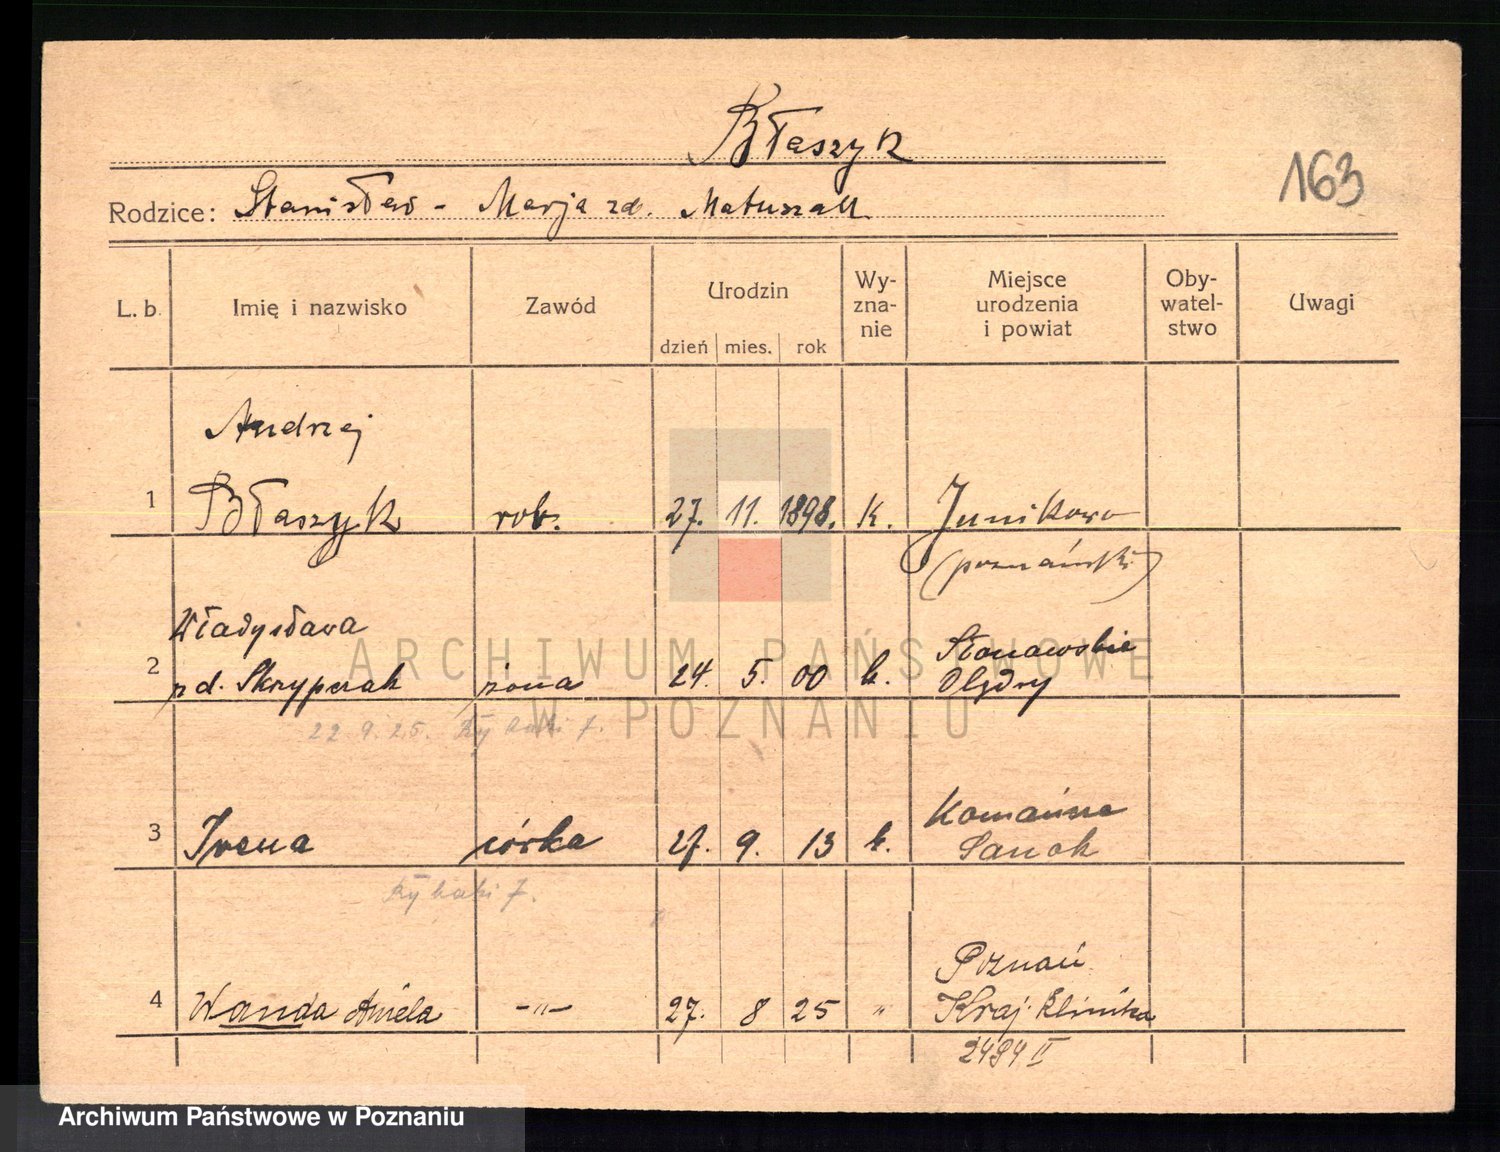 Błaszyk
163
Rodzice: Stanisław - Marja zd. Matuszak
L. b. Imię i nazwisko Zawód Urodzin dzień mies. rok Wy-zna-nie Miejsce urodzenia i powiat Oby-watel-stwo Uwagi
Andrzej
1 Błaszyk rob. 27. 11. 1898. k. Junikowo
(poznański)
Władysława
2 zd. Skrzypczak żona 24. 5. 00 k. Olędry
22 9. 25. 7.
Komańcza
3 Irena córka 27. 9. 13 k. Sanok
7.
Poznań
4 Wanda Aniela -"- 27. 8 25 " Kraj. Klinika
2494 II
ARCHIWUM PAŃSTWOWE
W POZNANIU
Archiwum Państwowe w Poznaniu